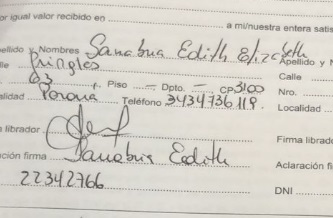 or igual valor recibido en ........ a mi/nuestra entera satis
pellido y Nombres Sanabria Edith Elizabeth Apellido y N
lle Pringles Calle
63 Piso — Dpto. — CP 3100 Nro.
alidad Parana Teléfono 3434736119. Localidad
a librador Firma librado
ación firma Sanabria Edith Aclaración fi
22342766 DNI